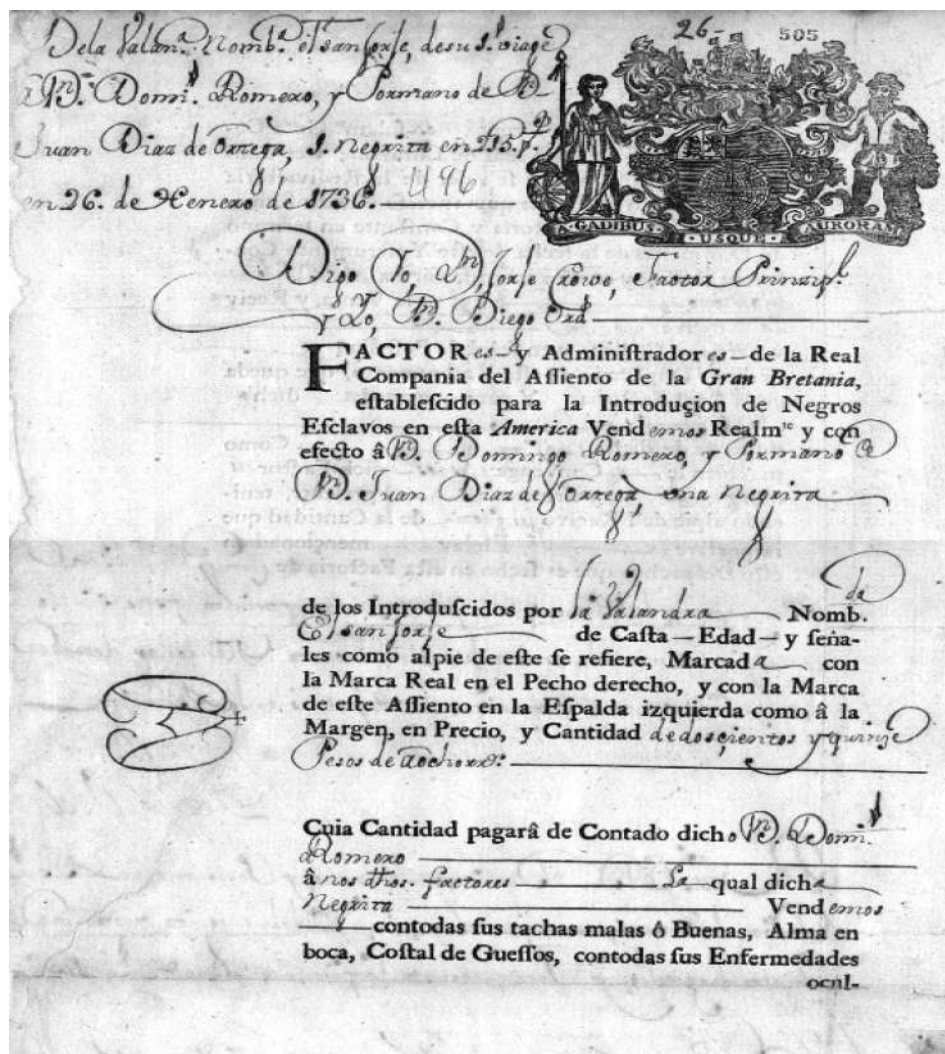 Dela Valan.ª Nomb.ª el San Jorje, de su 1.º viage
a D.n Domi.º Romero, y Por mano de D.n
Juan Diaz de Ortega, 1. negrita en 215. p.s
en 26. de Henero de 1736. 496
26-
505
A·GADIBUS·
·USQUE·
AURORAM
Digo Yo, D.n Jorje Crowe, Factor Prinzip.l
y Yo, D. Diego Ord
FACTOR es y Adminiſtrador es de la Real
Compania del Aſſiento de la Gran Bretania,
eſtableſcido para la Introduçion de Negros
Eſclavos en eſta America Vend emos Realm.te y con
efecto â D.n Domingo Romero, y Por mano de
D.n Juan Diaz de Ortega una negrita
de los Introduſcidos por la Valandra Nomb.da
El San Jorje de Caſta — Edad — y ſeña-
les como alpie de eſte ſe refiere, Marcad a con
la Marca Real en el Pecho derecho, y con la Marca
de eſte Aſſiento en la Eſpalda izquierda como â la
Margen, en Precio, y Cantidad de dosçientos y quinze
Pesos de aocho rr.s
Cuia Cantidad pagarâ de Contado dicho D.n Domi.º
Romero
â nos dhos. factores La qual dicha
Negrita Vend emos
contodas ſus tachas malas ó Buenas, Alma en
boca, Coſtal de Gueſſos, contodas ſus Enfermedades
ocul-